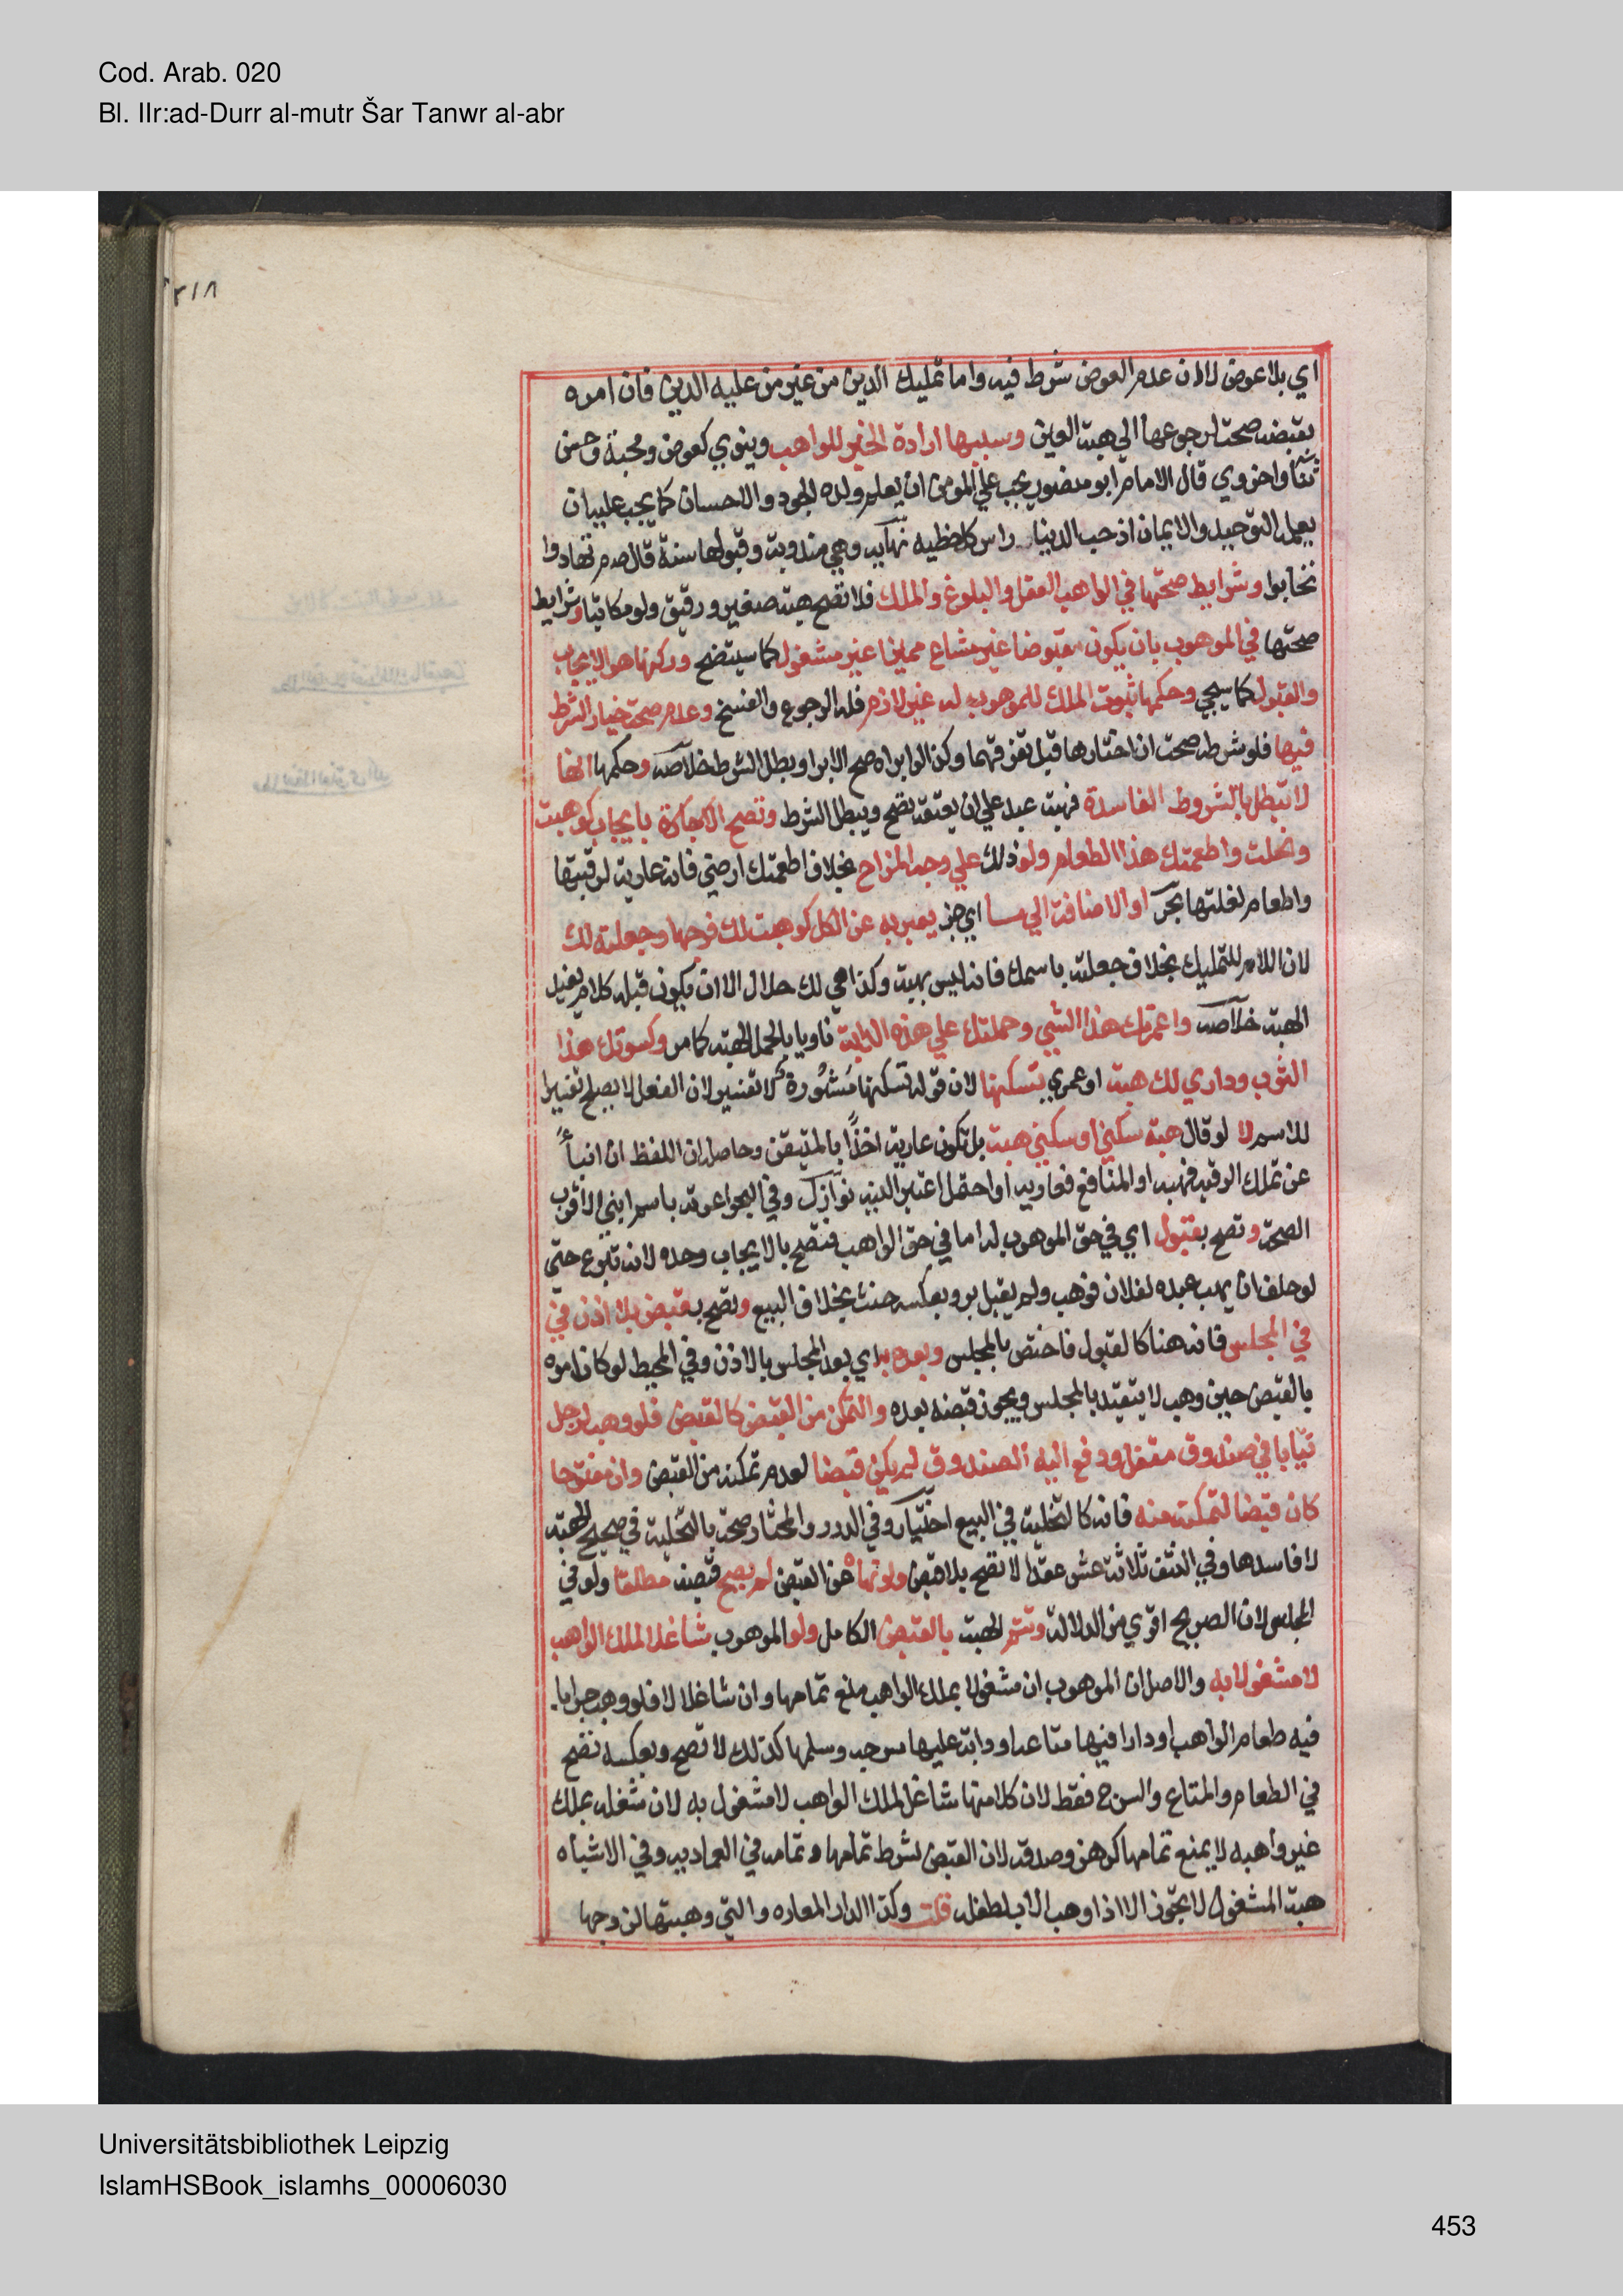 Cod. Arab. 020
Bl. IIr:ad-Durr al-mutr Šar Tanwr al-abr
٣١٨
اي بلا عوض لا ان عدم العوض شرط فيه واما تمليك الدين من غير من عليه الدين فان امره
بقبضه صحت لرجوعها الي هبة العين وسببها ارادة الخير للواهب وينوي كعوض ومحبة وحسن
ثناء واخروي قال الامام ابو منصور يجب علي المومن ان يعلم ولده الجود والاحسان كما يجب عليه ان
يعلمه التوحيد والايمان اذ حب الدنيا راس كل خطيه نهايه وهي مندوبة وقبولها سنة قال صم تهادوا
تحابوا وشرايط صحتها في الواهب العقل والبلوغ والملك فلا تصح هبة صغير ورقيق ولو مكاتبا وشرايط
صحتها في الموهوب بان يكون مقبوضا غير مشاع مميزا غير مشغول كما سيتضح وركنها هو الايجاب
والقبول كما سيجي وحكمها ثبوت الملك للموهوب له غير لازم فله الرجوع والفسخ وعدم صحة خيار الشرط
فيها فلو شرطه صحت ان اختارها قبل تفرقهما وكذا لو ابراه صح الابرا وبطل الشرط خلاصه وحكمها انها
لا تبطل بالشروط الفاسدة فهبة عبد علي ان يعتقه تصح ويبطل الشرط وتصح بايجاب كوهبت
ونحلت واطعمتك هذا الطعام ولو ذلك علي وجه المزاح بخلاف اطعمتك ارضي فانه عارية لرقبتها
واطعام لغلتها بحر او الاضافة الي ما اي جز يعبر به عن الكل كوهبت لك فرجها وجعلته لك
لان اللام للتمليك بخلاف جعلته باسمك فانه ليس بهبة وكذا هي لك حلال الا ان يكون قبله كلام يفيد
الهبة خلاصه واعمرتك هذا الشي وحملتك علي هذه الدابة ناويا بالحمل الهبة كما مر وكسوتك هذا
الثوب وداري لك هبة او عمري تسكنها لان قوله تسكنها مشورة لا تفسير لان الفعل لا يصلح تفسيرا
للاسم لا لو قال هبة سكني او سكني هبة بل تكون عارية اخذا بالمتيقن وحاصله ان اللفظ ان انبأ
عن تملك الرقبه فهبه او المنافع فعاريه او احتمل اعتبر النيه نوازل وفي البحر اغرسه باسم ابني الاقرب
الصحة وتصح بقبول اي في حق الموهوب له اما في حق الواهب فتصح بالايجاب وحده لانه تبرع حتي
لو حلف ان يهب عبده لفلان فوهب ولم يقبل بر وبعكسه حنث بخلاف البيع وتصح بقبض بلا اذن في
في المجلس فانه هنا كالقبول فاختص بالمجلس وبعده به اي بعد المجلس بالاذن وفي المحيط لو كان امره
بالقبض حين وهبه لا يتقيد بالمجلس ويجوز قبضه بعده والتمكن من القبض كالقبض فلو وهب لرجل
ثيابا في صندوق مقفل ودفع اليه الصندوق لم يكن قبضا لعدم تمكنه من القبض وان مفتوحا
كان قبضا لتمكنه منه فانه كالتخلية في البيع اختيار وفي الدرر والمختار صحته بالتخلية في صحيح الهبة
لا فاسدها وفي النتف ثلاثة عشر عقدا لا تصح بلا قبض ولو نهاه عن القبض لم يصح قبضه مطلقا ولو في
المجلس لان الصريح اقوي من الدلالة وتتم الهبة بالقبض الكامل ولو الموهوب شاغلا لملك الواهب
لا مشغولا به والاصل ان الموهوب ان مشغولا بملك الواهب منع تمامها وان شاغلا لا فلو وهب جرابا
فيه طعام الواهب او دارا فيها متاعه او دابة عليها سرجه وسلمها كذلك لا تصح وبعكسه تصح
في الطعام والمتاع والسرج فقط لان كلا منها شاغل لملك الواهب لا مشغول به لان شغله بملك
غير واهبه لا يمنع تمامها كرهن وصدقه لان القبض شرط تمامها وتمامه في العماديه وفي الاشباه
هبة المشغول لا تجوز الا اذا وهب الاب لطفله قلت وكذا الدار المعاره والتي وهبتها لزوجها
Universitätsbibliothek Leipzig
IslamHSBook_islamhs_00006030
453